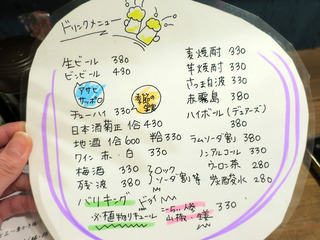 ドリンクメニュー
生ビール 380
ビンビール 490
アサヒ
サッポロ
季節の
チューハイ 330
日本酒菊正 1合 430
地酒 1合 600
ワイン 赤・白 330
梅酒 330
残波 380
ロック
ソーダ割り等
バリキング
※植物リキュール
330
麦焼酎 330
芋焼酎 330
さつま白波 330
赤霧島 380
ハイボール (デュワーズ)
380
ラムソーダ割り 380
ノンアルコール 330
ウーロン茶 280
炭酸水 280